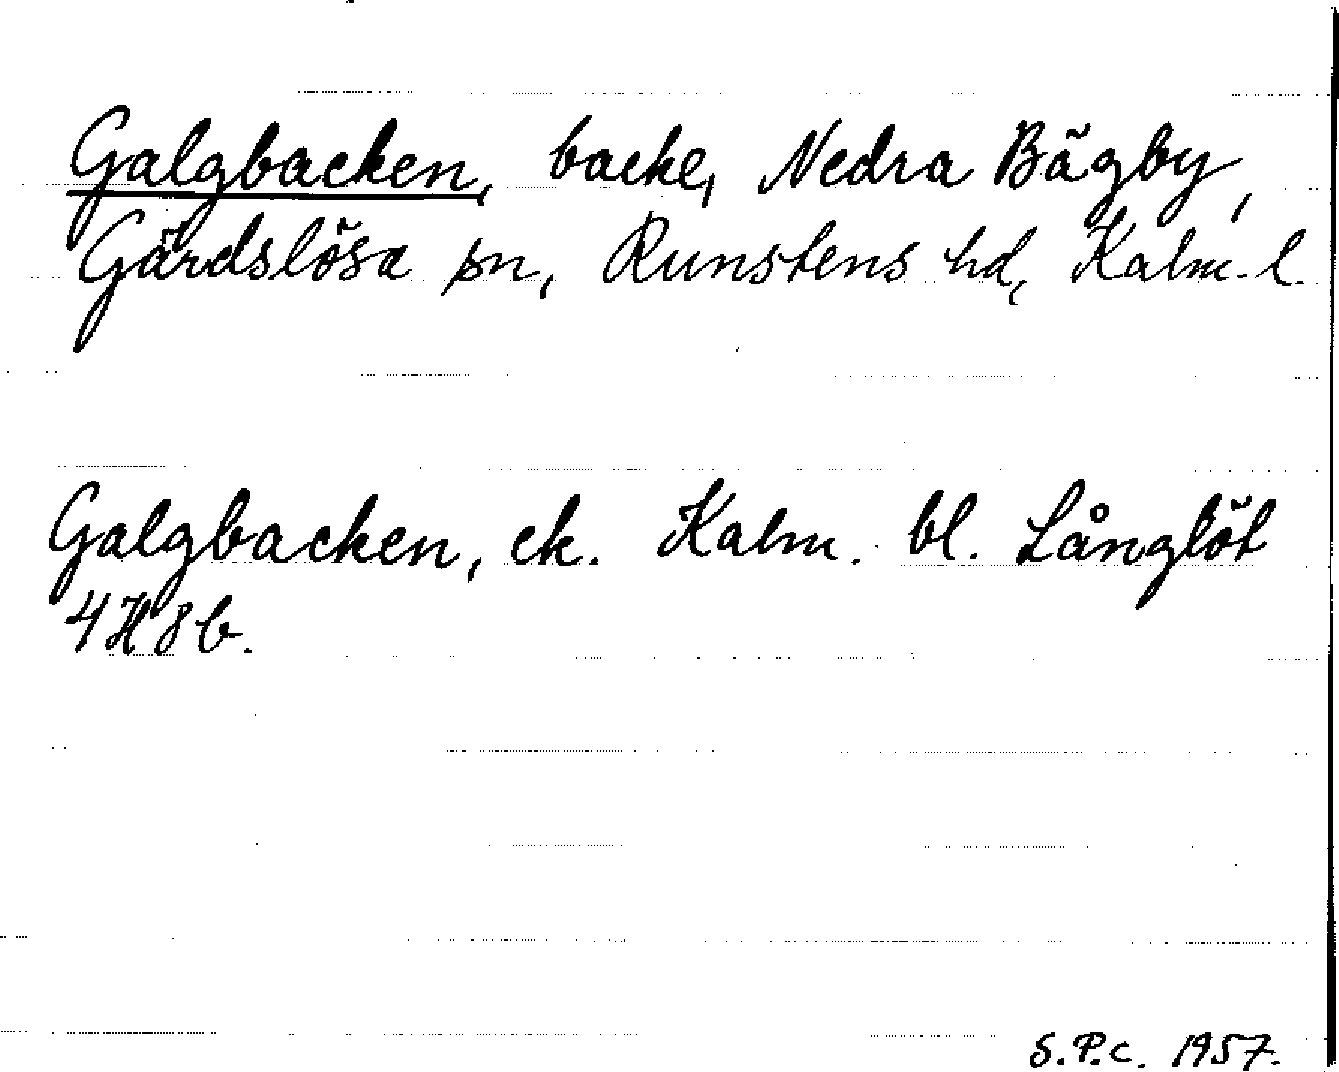 Galgbacken, backe, Nedra Bägby,
Gärdslösa sn, Runstens hd, Kalm. l.
Galgbacken, ek. Kalm. bl. Långlöt
4H8b.
S.P.C. 1957.